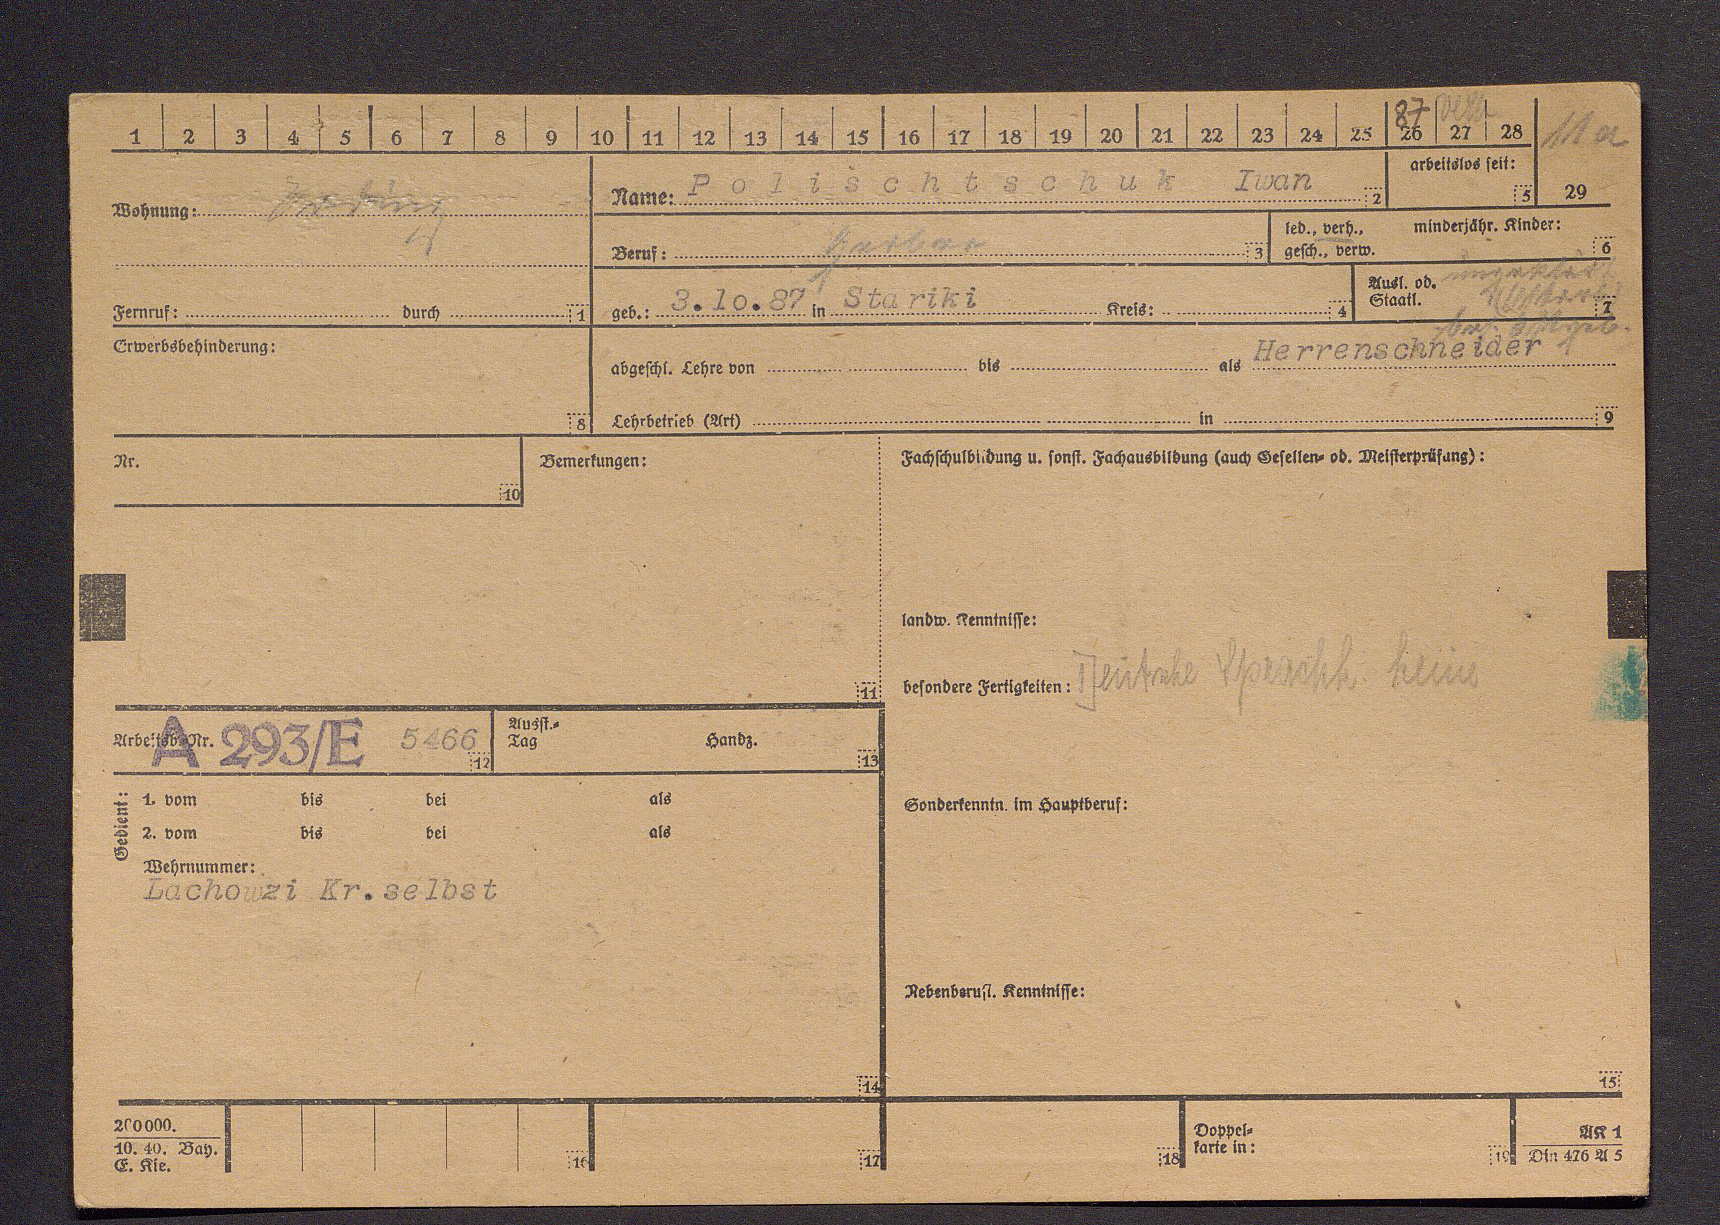 1 2 3 4 5 6 7 8 9 10 11 12 13 14 15 16 17 18 19 20 21 22 23 24 25 26 27 28
87
11a
29
Wohnung:
Name: Polischtschuk Iwan 2
arbeitslos seit: 5
Beruf: Gerber 3
led., verh., gesch., verw.
minderjähr. Kinder: 6
Fernruf: durch 1
geb.: 3.10.87 in Stariki Kreis: 4
Ausl. od. Staatl. ungeklärt 7
Erwerbsbehinderung: 8
abgeschl. Lehre von bis als Herrenschneider
Lehrbetrieb (Art) in 9
Nr. 10
Bemerkungen: 11
Fachschulbildung u. sonst. Fachausbildung (auch Gesellen- od. Meisterprüfung):
landw. Kenntnisse:
besondere Fertigkeiten: Deutsche Sprachk. keine
Arbeitsb.-Nr. A 293/E 5466 12
Ausst.-Tag Handz. 13
Gedient:
1. vom bis bei als
2. vom bis bei als
Wehrnummer:
Lachowzi Kr.selbst
14
Sonderkenntn. im Hauptberuf:
Nebenberufl. Kenntnisse:
15
200000.
10. 40. Bay.
E. Kie.
16 17 18
Doppel-
karte in: 19
AK 1
Din 476 A 5